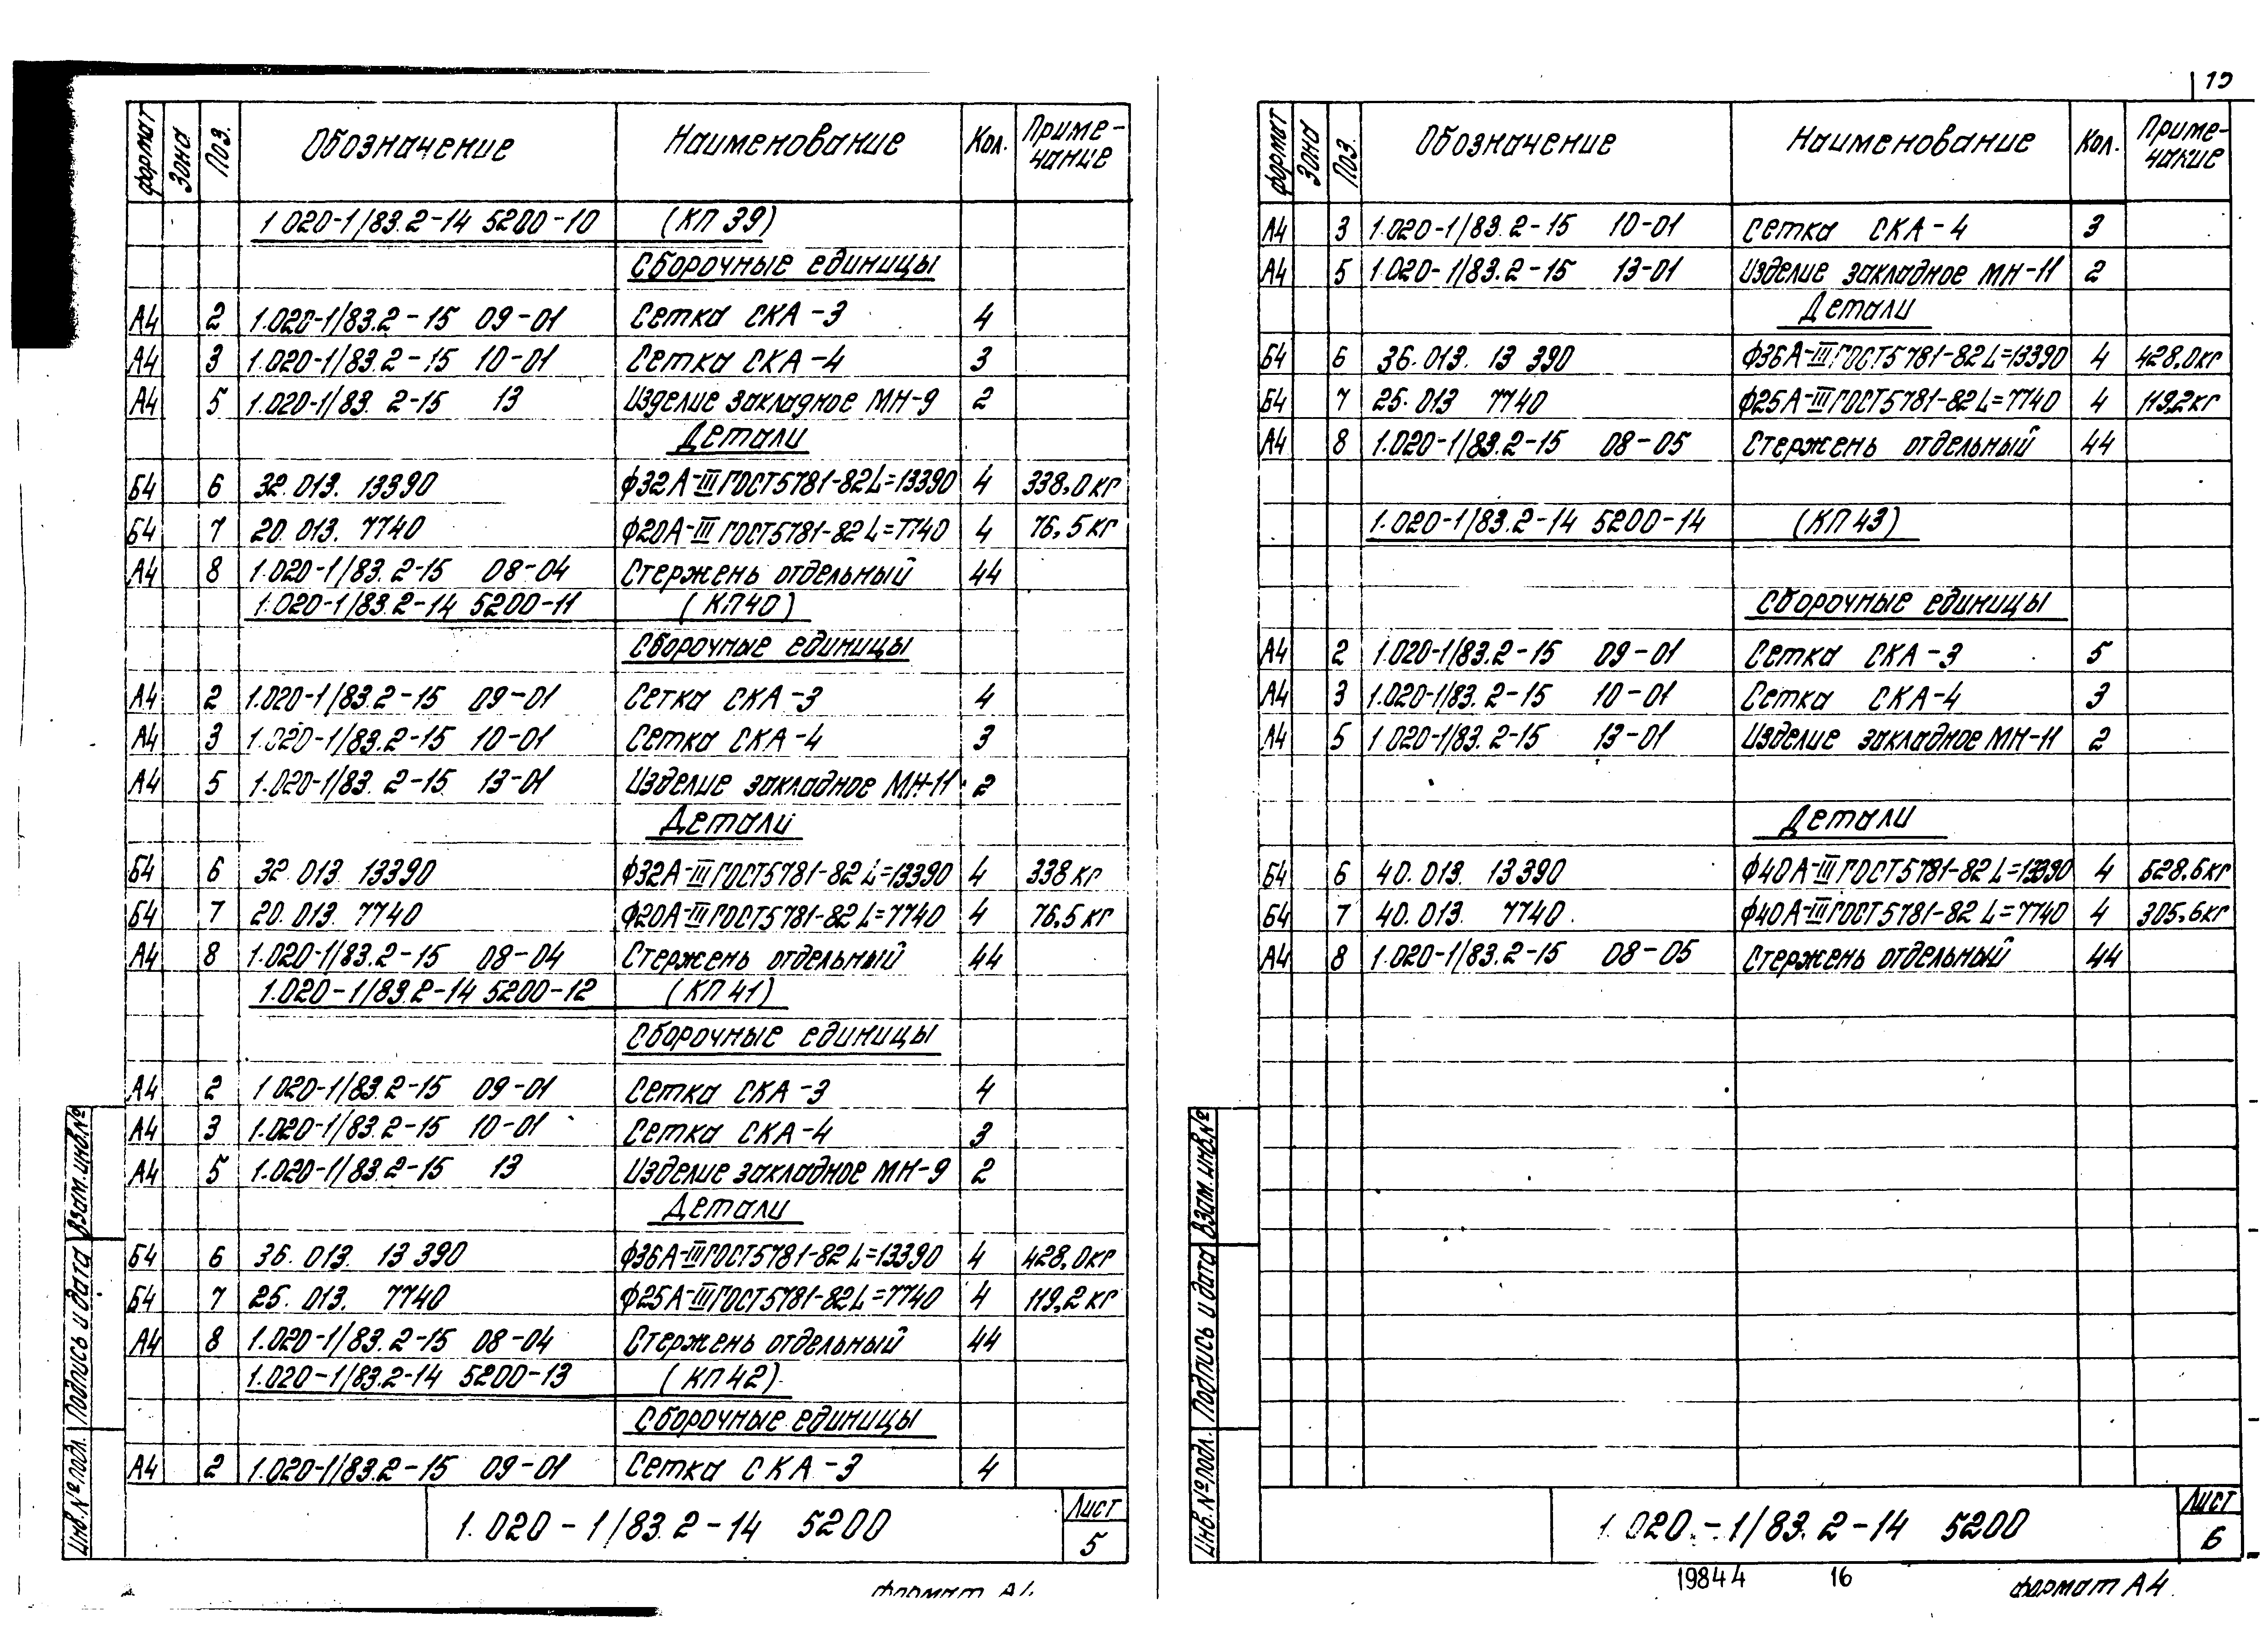 формат Зона Поз. Обозначение Наименование Кол. Приме-
чание
1.020-1/83.2-14 5200-10 (КП 39)
Сборочные единицы
А4 2 1.020-1/83.2-15 09-01 Сетка СКА-3 4
А4 3 1.020-1/83.2-15 10-01 Сетка СКА-4 3
А4 5 1.020-1/83.2-15 13 Изделие закладное МН-9 2
Детали
Б4 6 32.013. 13390 Ф32А-III ГОСТ5781-82 L=13390 4 338,0кг
Б4 7 20.013. 7740 Ф20А-III ГОСТ5781-82 L=7740 4 76,5кг
А4 8 1.020-1/83.2-15 08-04 Стержень отдельный 44
1.020-1/83.2-14 5200-11 (КП40)
Сборочные единицы
А4 2 1.020-1/83.2-15 09-01 Сетка СКА-3 4
А4 3 1.020-1/83.2-15 10-01 Сетка СКА-4 3
А4 5 1.020-1/83.2-15 13-01 Изделие закладное МН-11 2
Детали
Б4 6 32.013 13390 Ф32А-III ГОСТ5781-82 L=13390 4 338кг
Б4 7 20.013. 7740 Ф20А-III ГОСТ5781-82 L=7740 4 76,5кг
А4 8 1.020-1/83.2-15 08-04 Стержень отдельный 44
1.020-1/83.2-14 5200-12 (КП 41)
Сборочные единицы
А4 2 1.020-1/83.2-15 09-01 Сетка СКА-3 4
А4 3 1.020-1/83.2-15 10-01 Сетка СКА-4 3
А4 5 1.020-1/83.2-15 13 Изделие закладное МН-9 2
Детали
Б4 6 36.013. 13 390 Ф36А-III ГОСТ5781-82 L=13390 4 428,0кг
Б4 7 25.013. 7740 Ф25А-III ГОСТ5781-82 L=7740 4 119,2кг
А4 8 1.020-1/83.2-15 08-04 Стержень отдельный 44
1.020-1/83.2-14 5200-13 (КП 42)
Сборочные единицы
А4 2 1.020-1/83.2-15 09-01 Сетка СКА-3 4
Инв.№подл. Подпись и дата Взам.инв№
1.020-1/83.2-14 5200
Лист
5
формат А4
формат Зона Поз. Обозначение Наименование Кол. Приме-
чание
А4 3 1.020-1/83.2-15 10-01 Сетка СКА-4 3
А4 5 1.020-1/83.2-15 13-01 Изделие закладное МН-11 2
Детали
Б4 6 36.013. 13 390 Ф36А-III ГОСТ5781-82 L=13390 4 428,0кг
Б4 7 25.013 7740 Ф25А-III ГОСТ5781-82 L=7740 4 119,2кг
А4 8 1.020-1/83.2-15 08-05 Стержень отдельный 44
1.020-1/83.2-14 5200-14 (КП 43)
Сборочные единицы
А4 2 1.020-1/83.2-15 09-01 Сетка СКА-3 5
А4 3 1.020-1/83.2-15 10-01 Сетка СКА-4 3
А4 5 1.020-1/83.2-15 13-01 Изделие закладное МН-11 2
Детали
Б4 6 40.013. 13390 Ф40А-III ГОСТ5781-82 L=13390 4 528,6кг
Б4 7 40.013. 7740 Ф40А-III ГОСТ5781-82 L=7740 4 305,6кг
А4 8 1.020-1/83.2-15 08-05 Стержень отдельный 44
Инв.№подл. Подпись и дата Взам.инв.№
1.020-1/83.2-14 5200
Лист
6
19844 16
формат А4